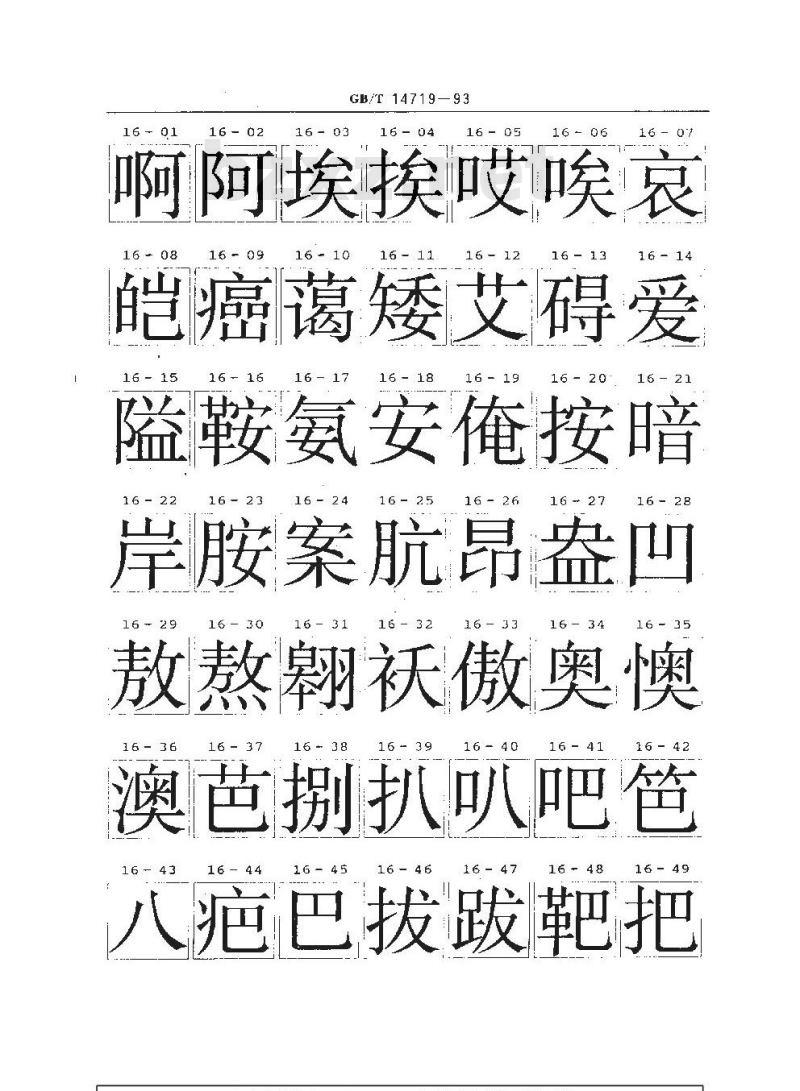 GB/T 14719—93
16-01 16-02 16-03 16-04 16-05 16-06 16-07
啊阿埃挨哎唉哀
16-08 16-09 16-10 16-11 16-12 16-13 16-14
皑癌蔼矮艾碍爱
16-15 16-16 16-17 16-18 16-19 16-20 16-21
隘鞍氨安俺按暗
16-22 16-23 16-24 16-25 16-26 16-27 16-28
岸胺案肮昂盎凹
16-29 16-30 16-31 16-32 16-33 16-34 16-35
敖熬翱袄傲奥懊
16-36 16-37 16-38 16-39 16-40 16-41 16-42
澳芭捌扒叭吧笆
16-43 16-44 16-45 16-46 16-47 16-48 16-49
八疤巴拔跋靶把